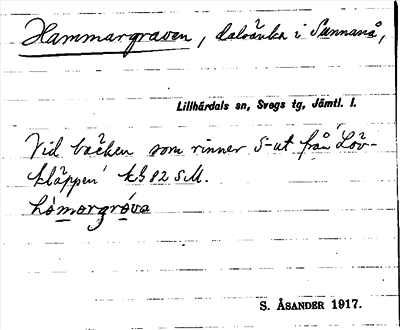 Hammargraven, dalsänka i Sunnanå,
Lillhärdals sn, Svegs tg, Jämtl. l.
Vid bäcken som rinner S-ut från Löv-
kläppen kb 82 S.M.
hȯmargrȯva
S. ÅSANDER 1917.